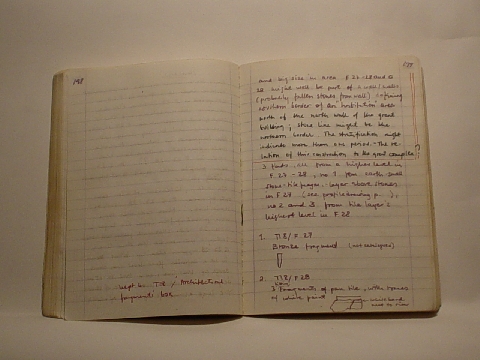 198
kept in T18 / Architectural
fragments box
and big size in area F 27/28 and
28 might well be part of a wall
(probably fallen stones from wall)
border of an area
north of the north wall of the great
building; stone line might be the
northern border. The stratification might
indicate more than one period. The re-
lation of this construction to the great complex
3 finds, all from a higher level in
F 27 - 28, no 1 from earth and
stone layer above stones
in F 27 (see profile drawing p ),
no 2 and 3 from the layer's
highest level in F 28
1. T18/ F 27
Bronze fragment
2. T18/ F 28
3 fragments of pan tile, with traces
of white paint